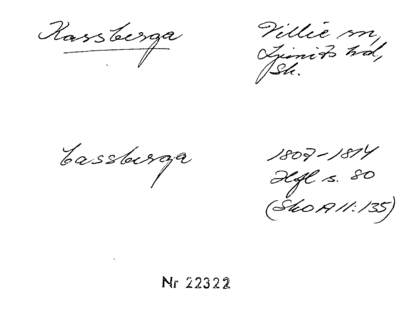 Kassberga Villie sn,
Ljunits hd,
Sk.
Cassberga 1807-1814
Hfl s. 80
(SkO A II:135)
Nr 22322